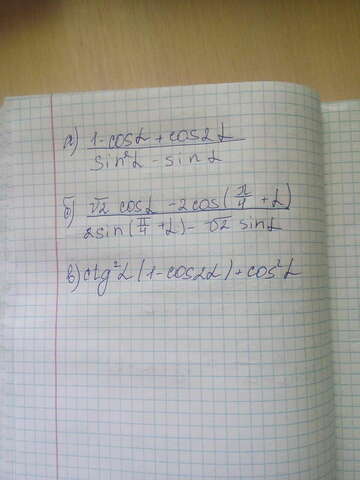 а) (1-cosα + cos2α)/(sin²α - sinα)
б) (√2 cosα - 2cos(π/4 + α))/(2sin(π/4 + α) - √2 sinα)
в) ctg²α (1-cos2α) + cos²α